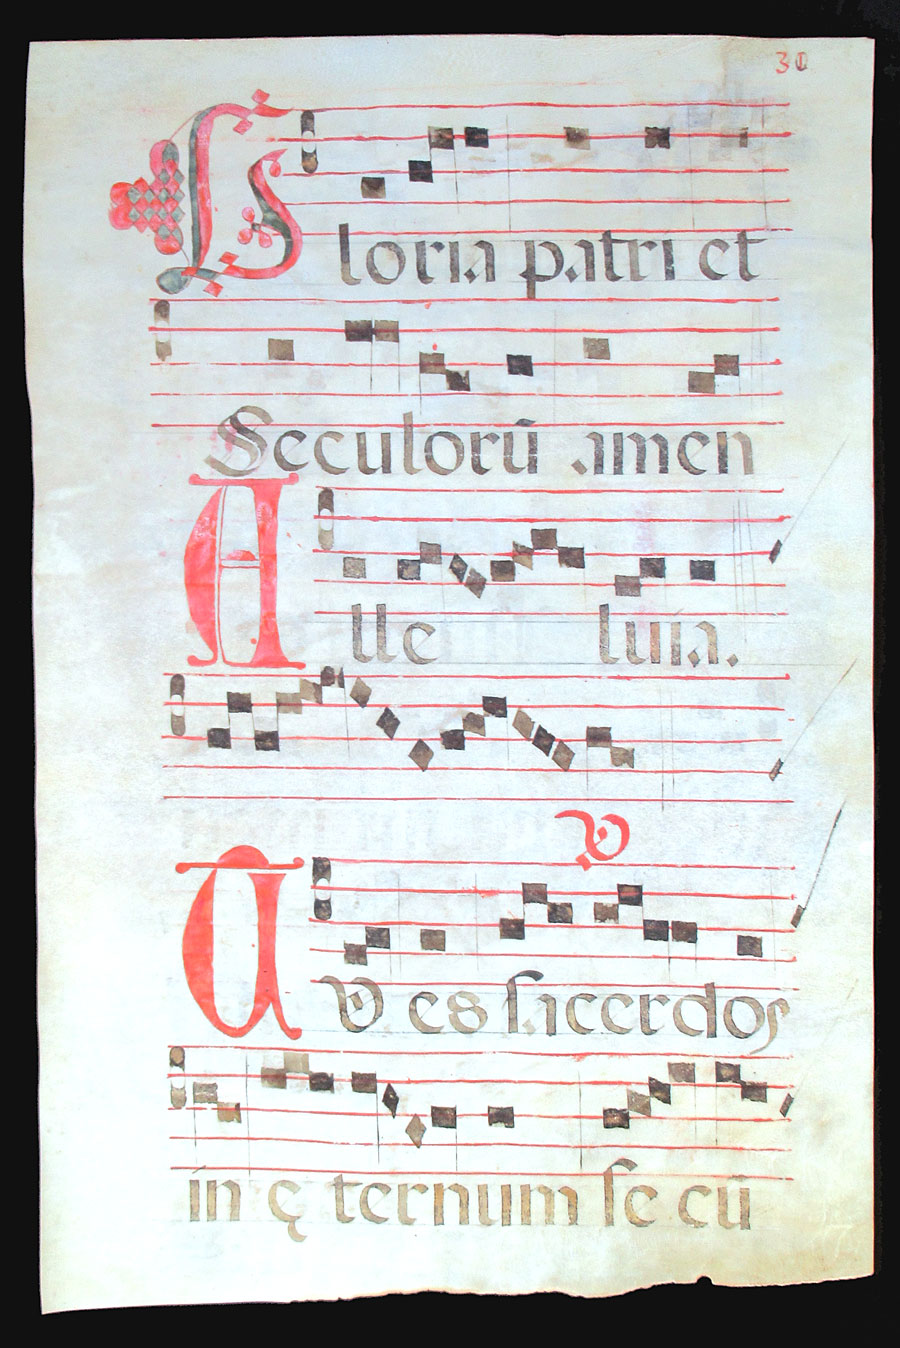 30
Gloria patri et
Seculorū amen
Alleluia.
V
TV es sacerdos
in ęternum se cū